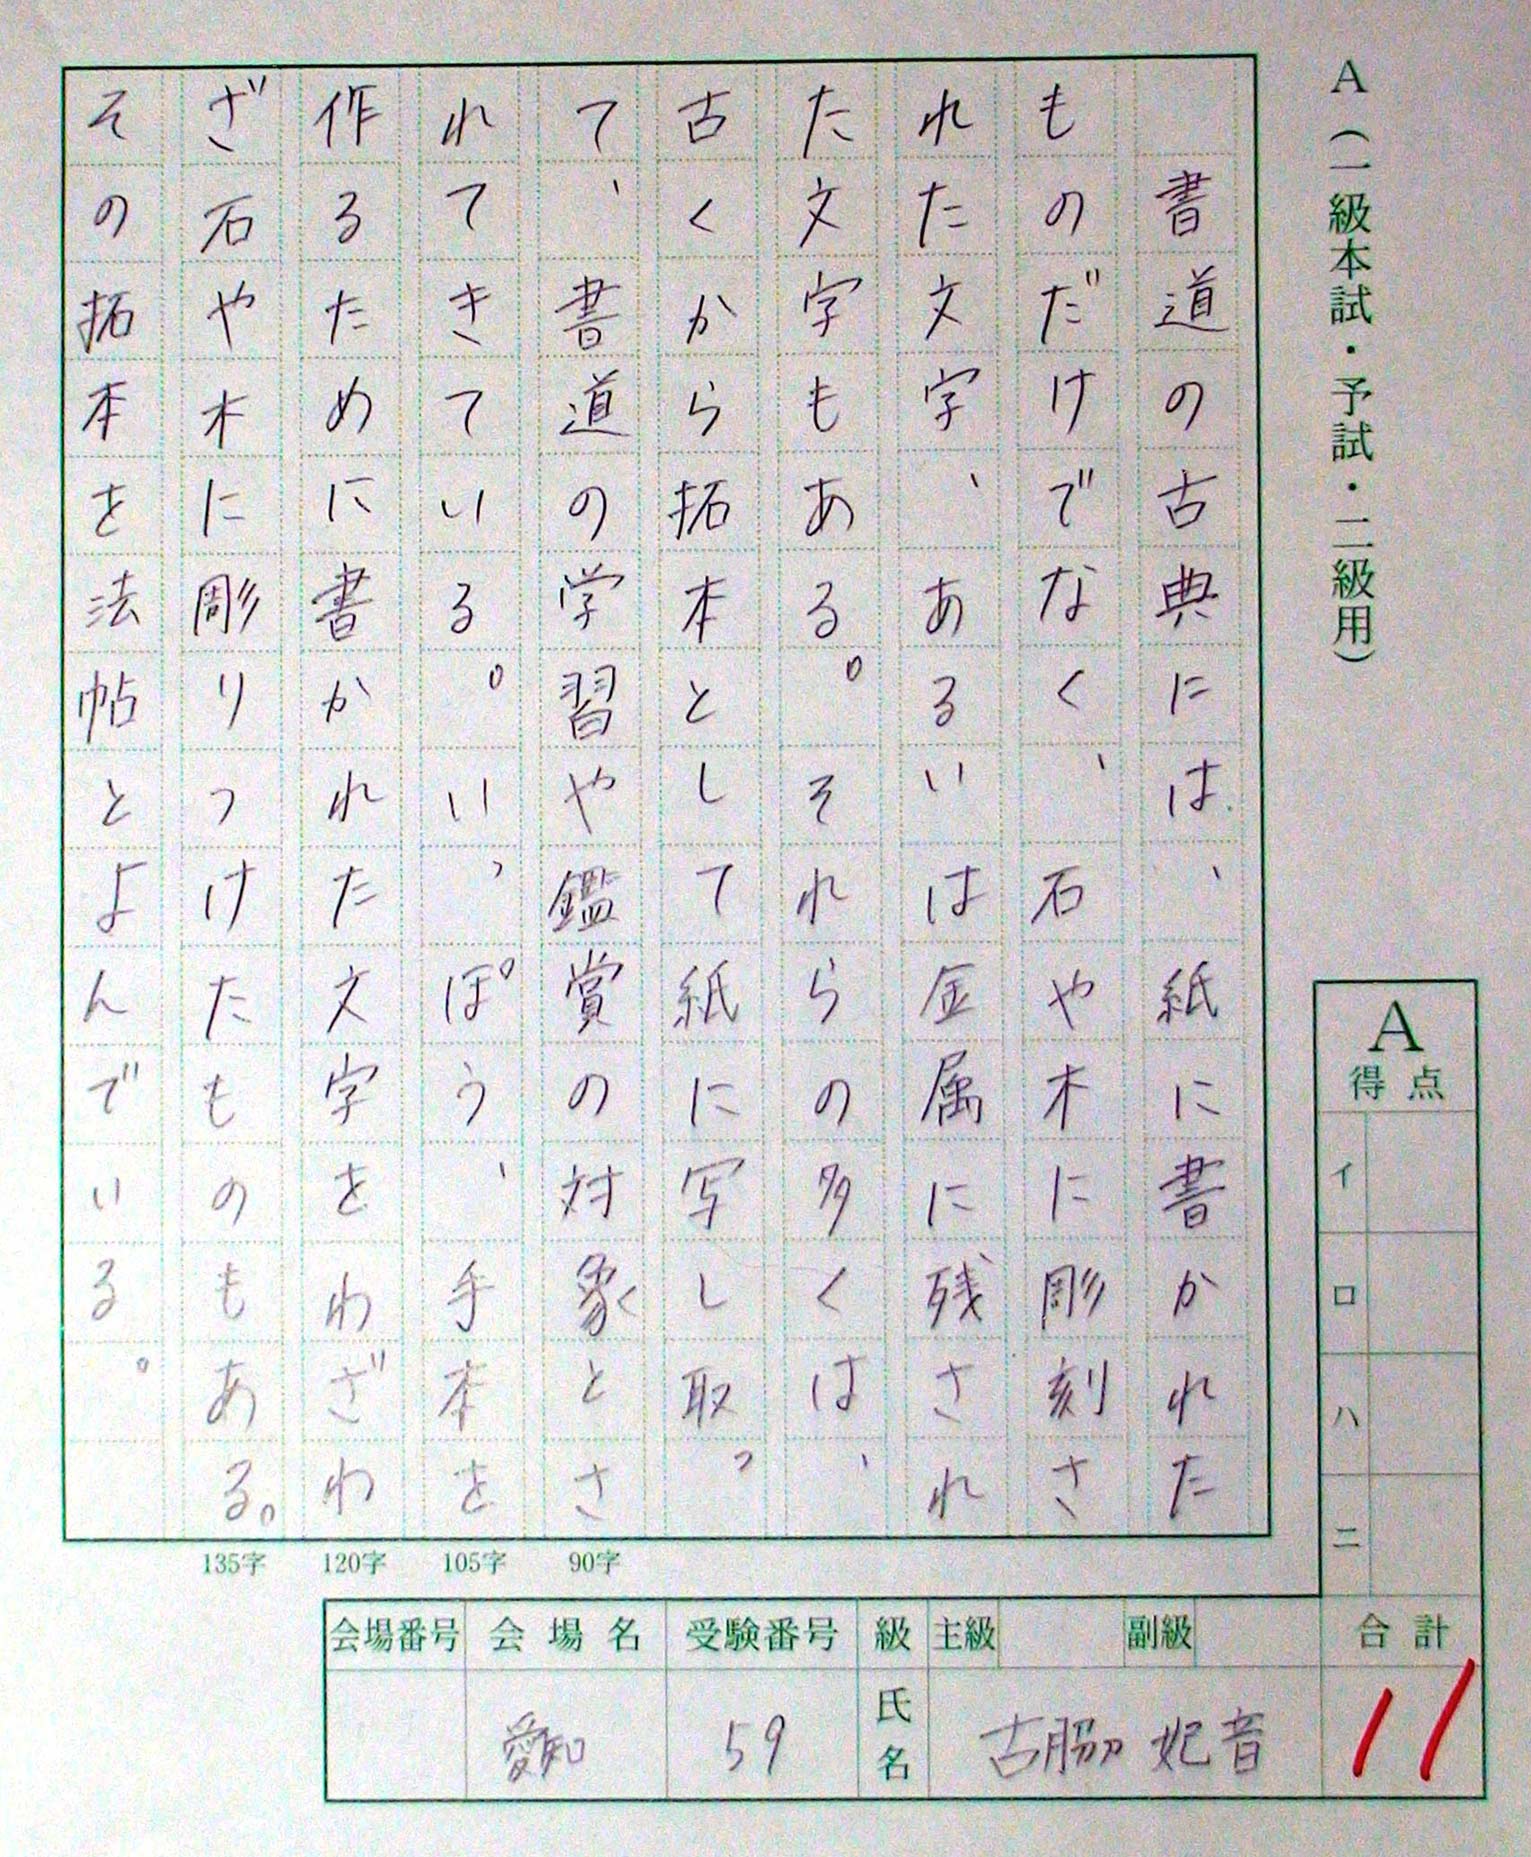 A（一級本試・予試・二級用）
書道の古典には、紙に書かれた
ものだけでなく、石や木に彫刻さ
れた文字、あるいは金属に残され
た文字もある。それらの多くは、
古くから拓本として紙に写し取っ
て、書道の学習や鑑賞の対象とさ
れてきている。いっぽう、手本を
作るために書かれた文字をわざわ
ざ石や木に彫りつけたものもある。
その拓本を法帖とよんでいる。
135字 120字 105字 90字
A
得点
イ
ロ
ハ
ニ
合計
11
会場番号 会場名 受験番号 級 主級 副級
愛知 59 氏名 古脇 妃音